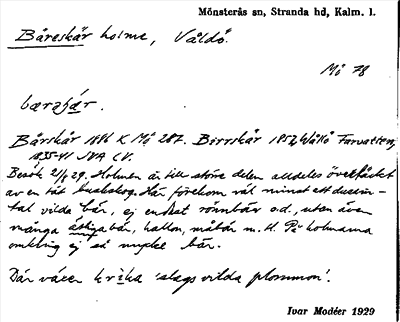 Mönsterås sn, Stranda hd, Kalm. l.
Båreskär holme, Vållö.
Mö 78
bærəʃǽr.
Bårskär 1886 K Mö 287. Birrskär 1857, Vållö Farvatten,
1835-41 JVA CV.
Besök 21/8 29. Holmen är till större delen alldeles övertäckt
av en tät buskskog. Här förekom väl minst ett dussin-
tal vilda bär, ej endast rönnbär o.d., utan även
många ätliga bär, hallon, måbär m.fl. På holmarna
omkring ej så mycke bär.
Där växer krika 'slags vilda plommon'.
Ivar Modéer 1929